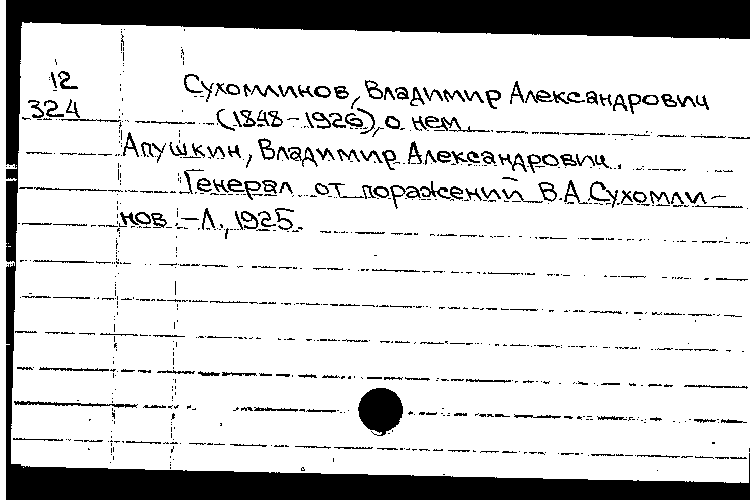 12
324
Сухомлинов, Владимир Александрович
(1848-1926), о нем.
Апушкин, Владимир Александрович.
Генерал от поражений В.А.Сухомли-
нов -Л., 1925.